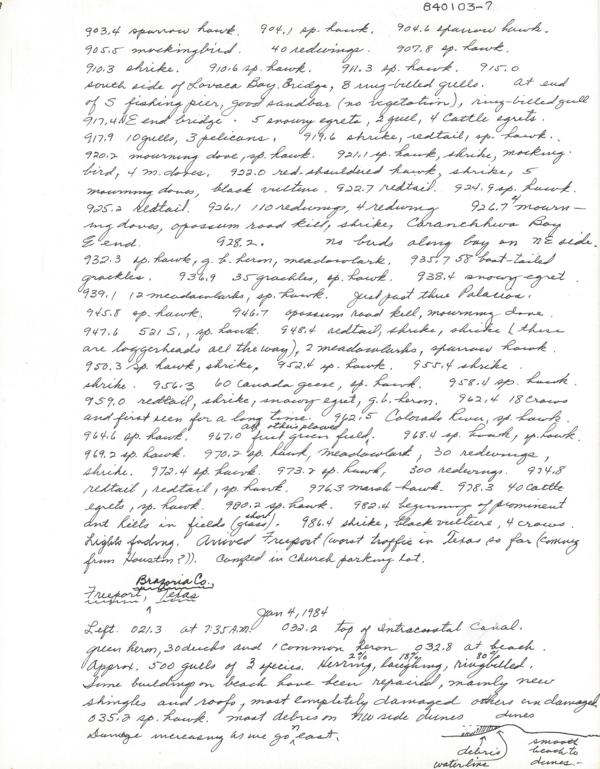 840103-7
903.4 sparrow hawk. 904.1 sp. hawk. 904.6 sparrow hawk.
905.5 mockingbird. 40 redwings. 907.8 sp. hawk.
910.3 shrike. 910.6 sp. hawk. 911.3 sp. hawk. 915.0
south side of Lavaca Bay Bridge, 8 ring-billed gulls. At end
of S fishing pier, good sandbar (no vegetation), ring-billed gull
917.4 N E end bridge. 5 snowy egrets, 2 gull, 4 Cattle egrets.
917.9 10 gulls, 3 pelicans. 919.6 shrike, redtail, sp. hawk.
920.2 mourning dove, sp. hawk. 921.1 sp. hawk, shrike, mocking-
bird, 4 m. doves. 922.0 red-shouldered hawk, shrike, 5
mourning doves, black vulture. 922.7 redtail. 924.9 sp. hawk.
925.2 redtail. 926.1 110 redwings, 4 redwing 926.7 4 mourn-
ing doves, opossum road kill, shrike, Caranchhua Bay
E end. 928.2. no birds along bay on NE side.
932.3 sp. hawk, g. b. heron, meadowlark. 935.7 58 boat-tailed
grackles. 936.9 35 grackles, sp. hawk. 938.4 snowy egret.
939.1 12 meadowlarks, sp. hawk. Just past thru Palacios.
945.8 sp. hawk. 946.7 opossum road kill, mourning dove.
947.6 521 S., sp. hawk. 948.4 redtail, shrike, shrike (there
are loggerheads all the way), 2 meadowlarks, sparrow hawk.
950.3 sp. hawk, shrike. 952.4 sp. hawk. 955.4 shrike.
shrike. 956.3 60 Canada geese, sp. hawk. 958.4 sp. hawk.
959.0 redtail, shrike, snowy egret, g. b. heron. 962.4 18 crows
and first seen for a long time. 962.5 Colorado River, sp. hawk.
all others plowed
964.6 sp. hawk. 967.0 first green field. 968.4 sp. hawk, sp. hawk.
969.2 sp. hawk. 970.2 sp. hawk, meadowlark, 30 redwings,
shrike. 972.4 sp. hawk. 973.2 sp. hawk, 300 redwings. 974.8
redtail, redtail, sp. hawk. 976.3 marsh hawk. 978.3 40 cattle
egrets, sp. hawk. 980.2 sp. hawk. 982.4 beginning of prominent
ant hills in fields (short grass). 986.4 shrike, black vulture, 4 crows.
Lights fading. Arrived Freeport (worst traffic in Texas so far (coming
from Houston?)). Camped in Church parking lot.
Brazoria Co.,
Freeport, Texas
Jan 4, 1984
Left. 021.3 at 7:35 A.M. 032.2 top of Intracoastal Canal.
green heron, 30 ducks and 1 common heron 032.8 at beach.
2% 18% 80%
Approx. 500 gulls of 3 species. Herring, laughing, ringbilled.
Some building on beach have been repaired, mainly new
shingles and roofs, most completely damaged others undamaged
035.2 sp. hawk. most debris on NW side dunes dunes
Damage increasing as we go n east.
debris
waterline
smooth
beach to
dunes.-